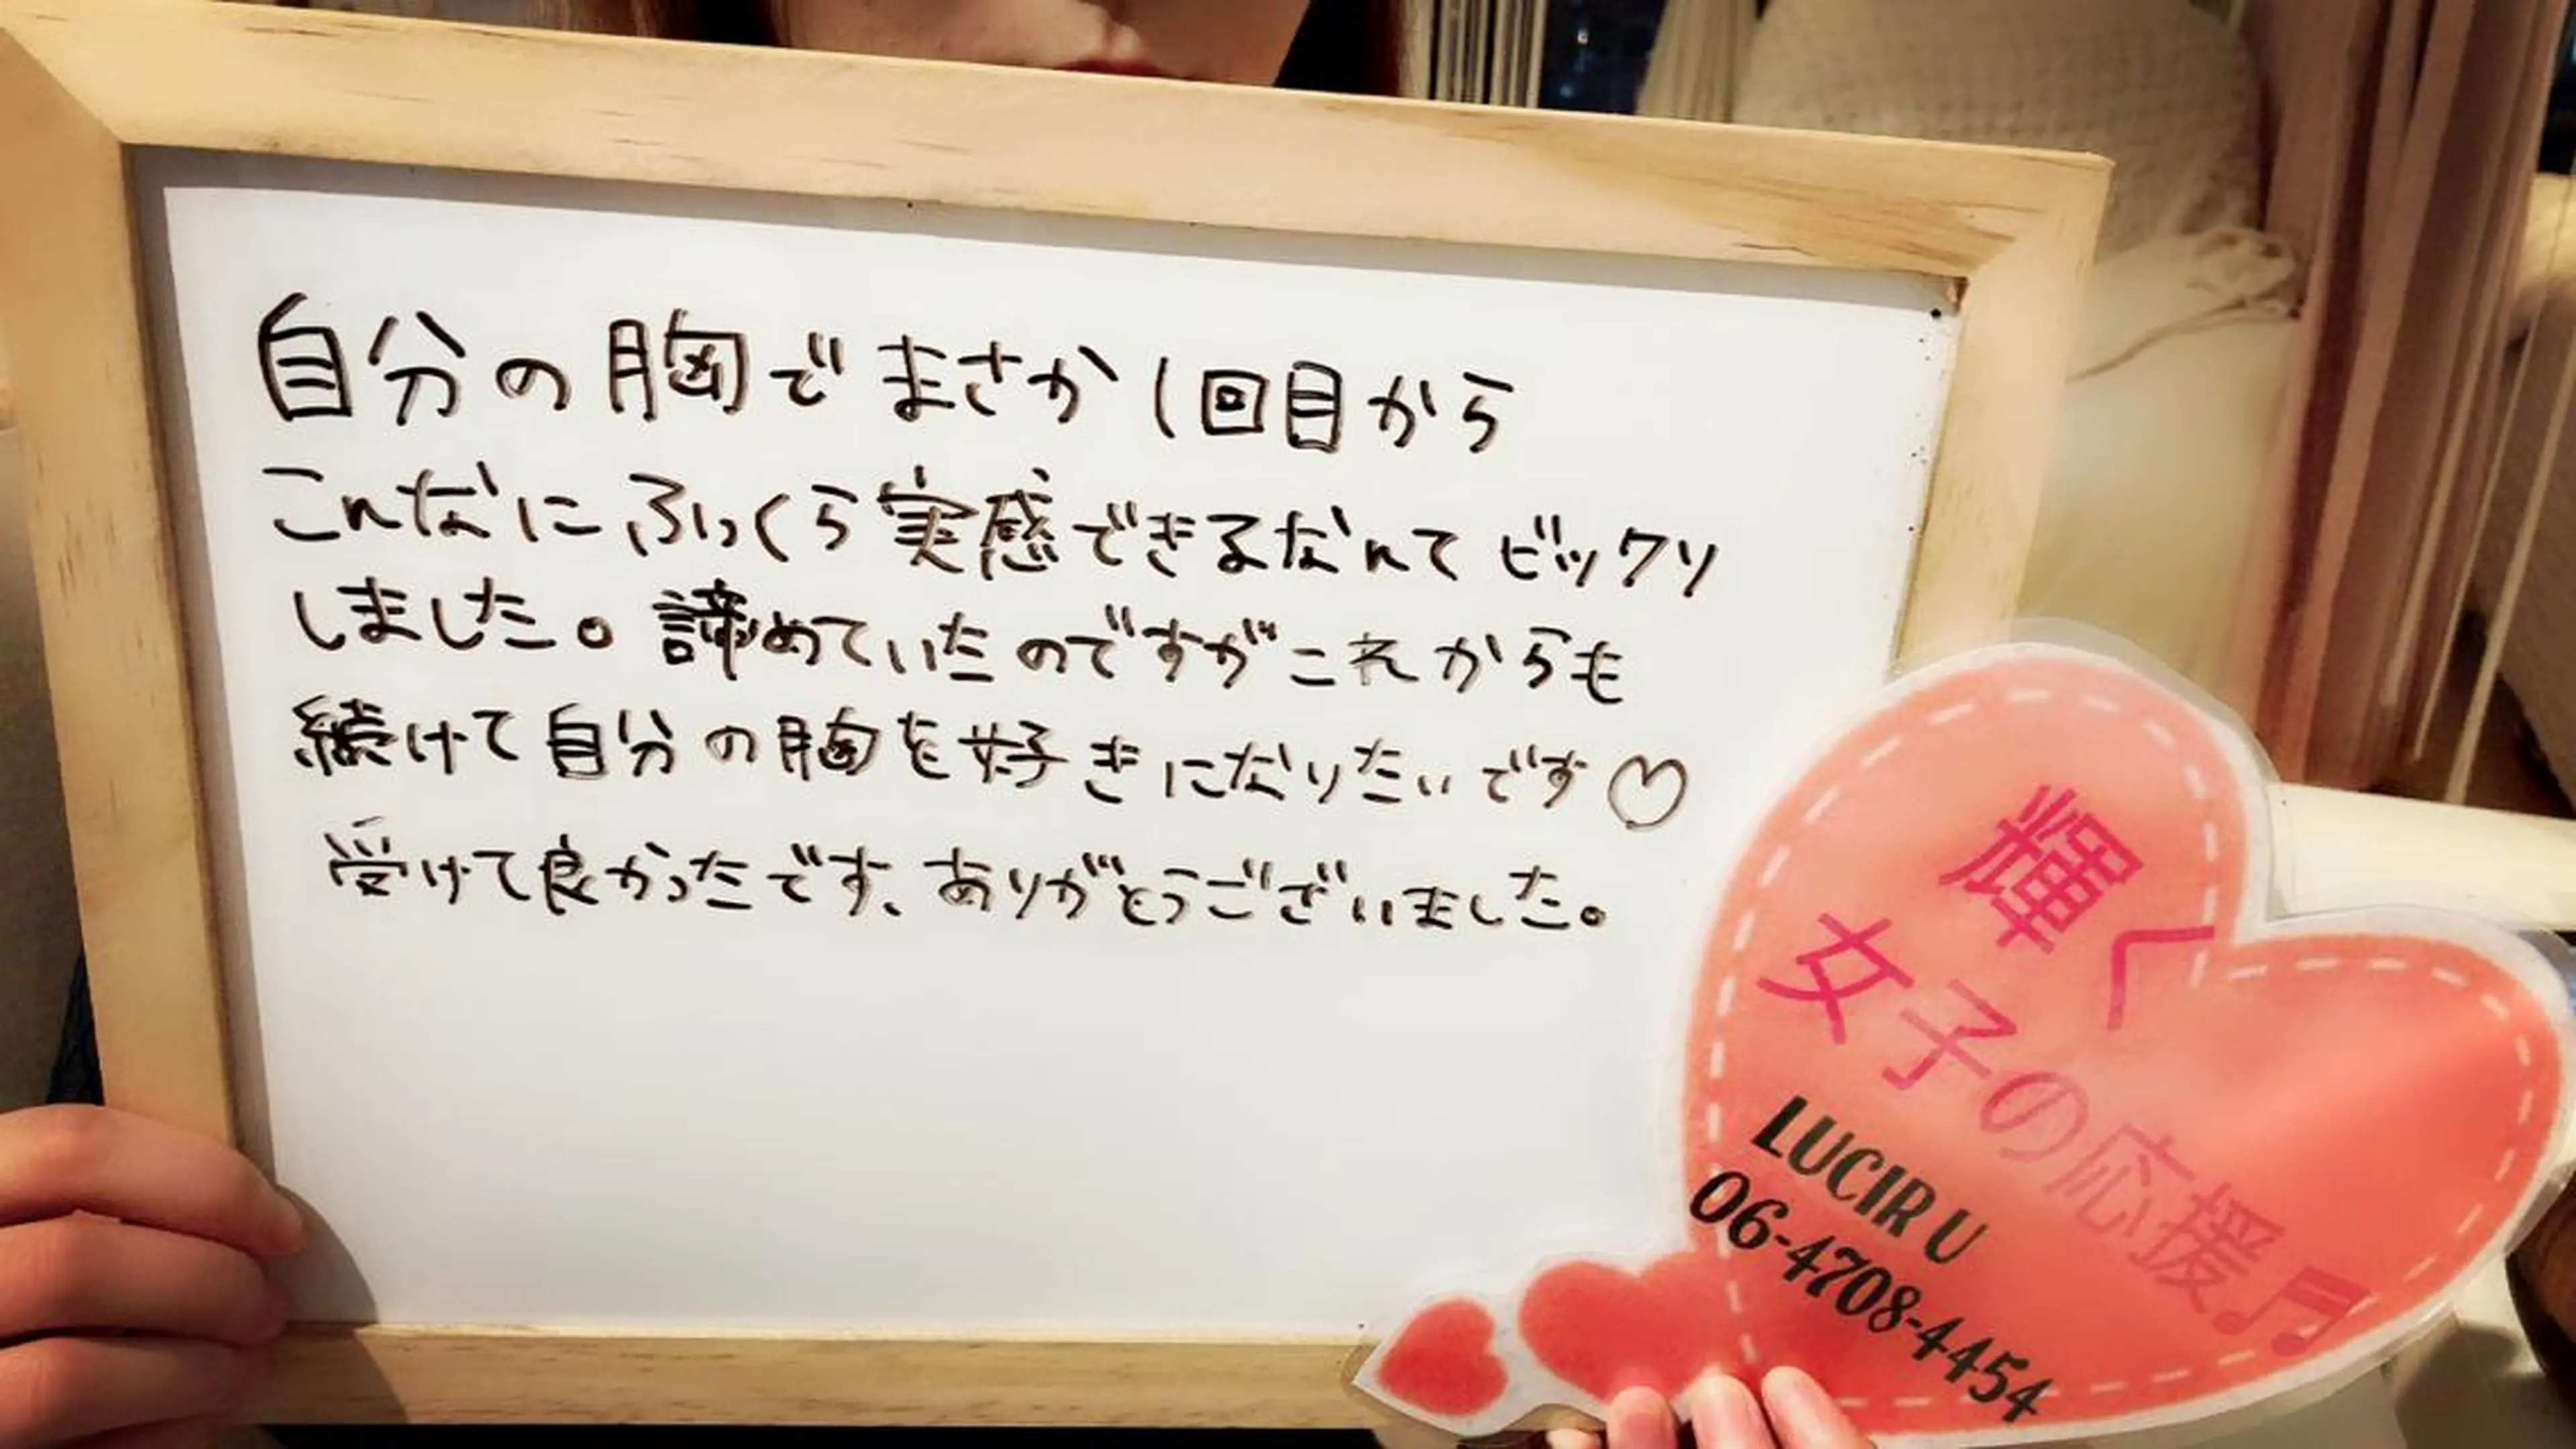 自分の胸でまさか1回目から
こんなにふっくら実感できるなんてビックリ
しました。諦めていたのですがこれからも
続けて自分の胸を好きになりたいです♡
受けて良かったです、ありがとうございました。
輝く
女子の応援♬
LUCIR U
06-4708-4454